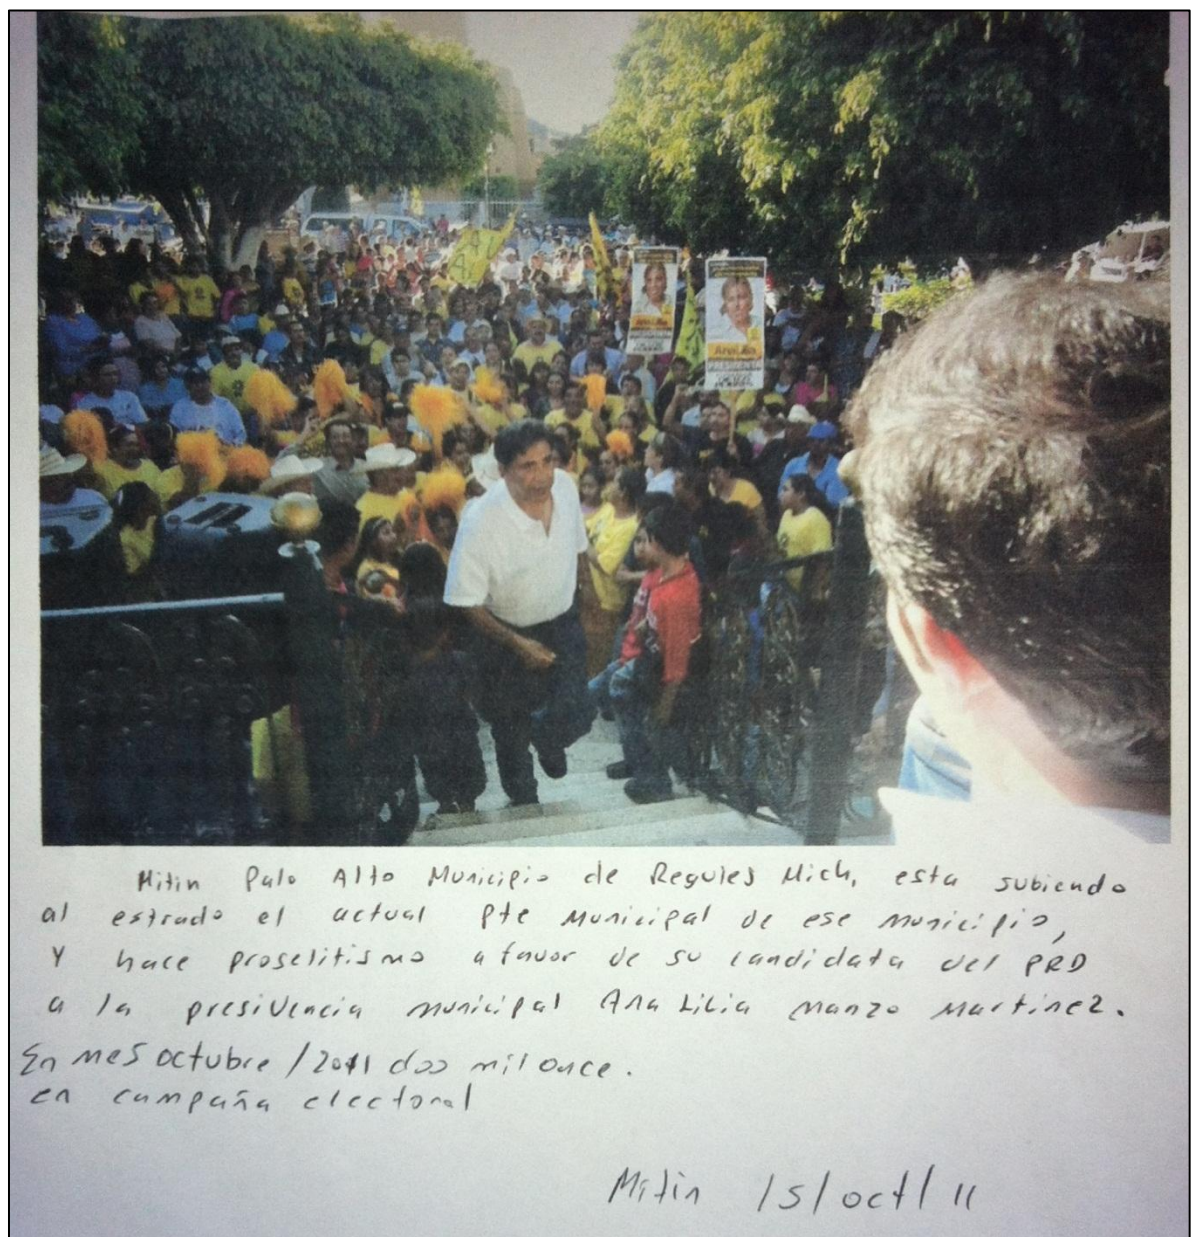 Ana Lilia
PRESIDENTA
Mitin Palo Alto Municipio de Regules Mich, esta subiendo
al estrado el actual Pte Municipal de ese municipio,
Y hace proselitismo a favor de su candidata del PRD
a la presidencia municipal Ana Lilia Manzo Martinez.
En mes octubre /2011 dos mil once.
en campaña electoral
Mitin 15/oct/11